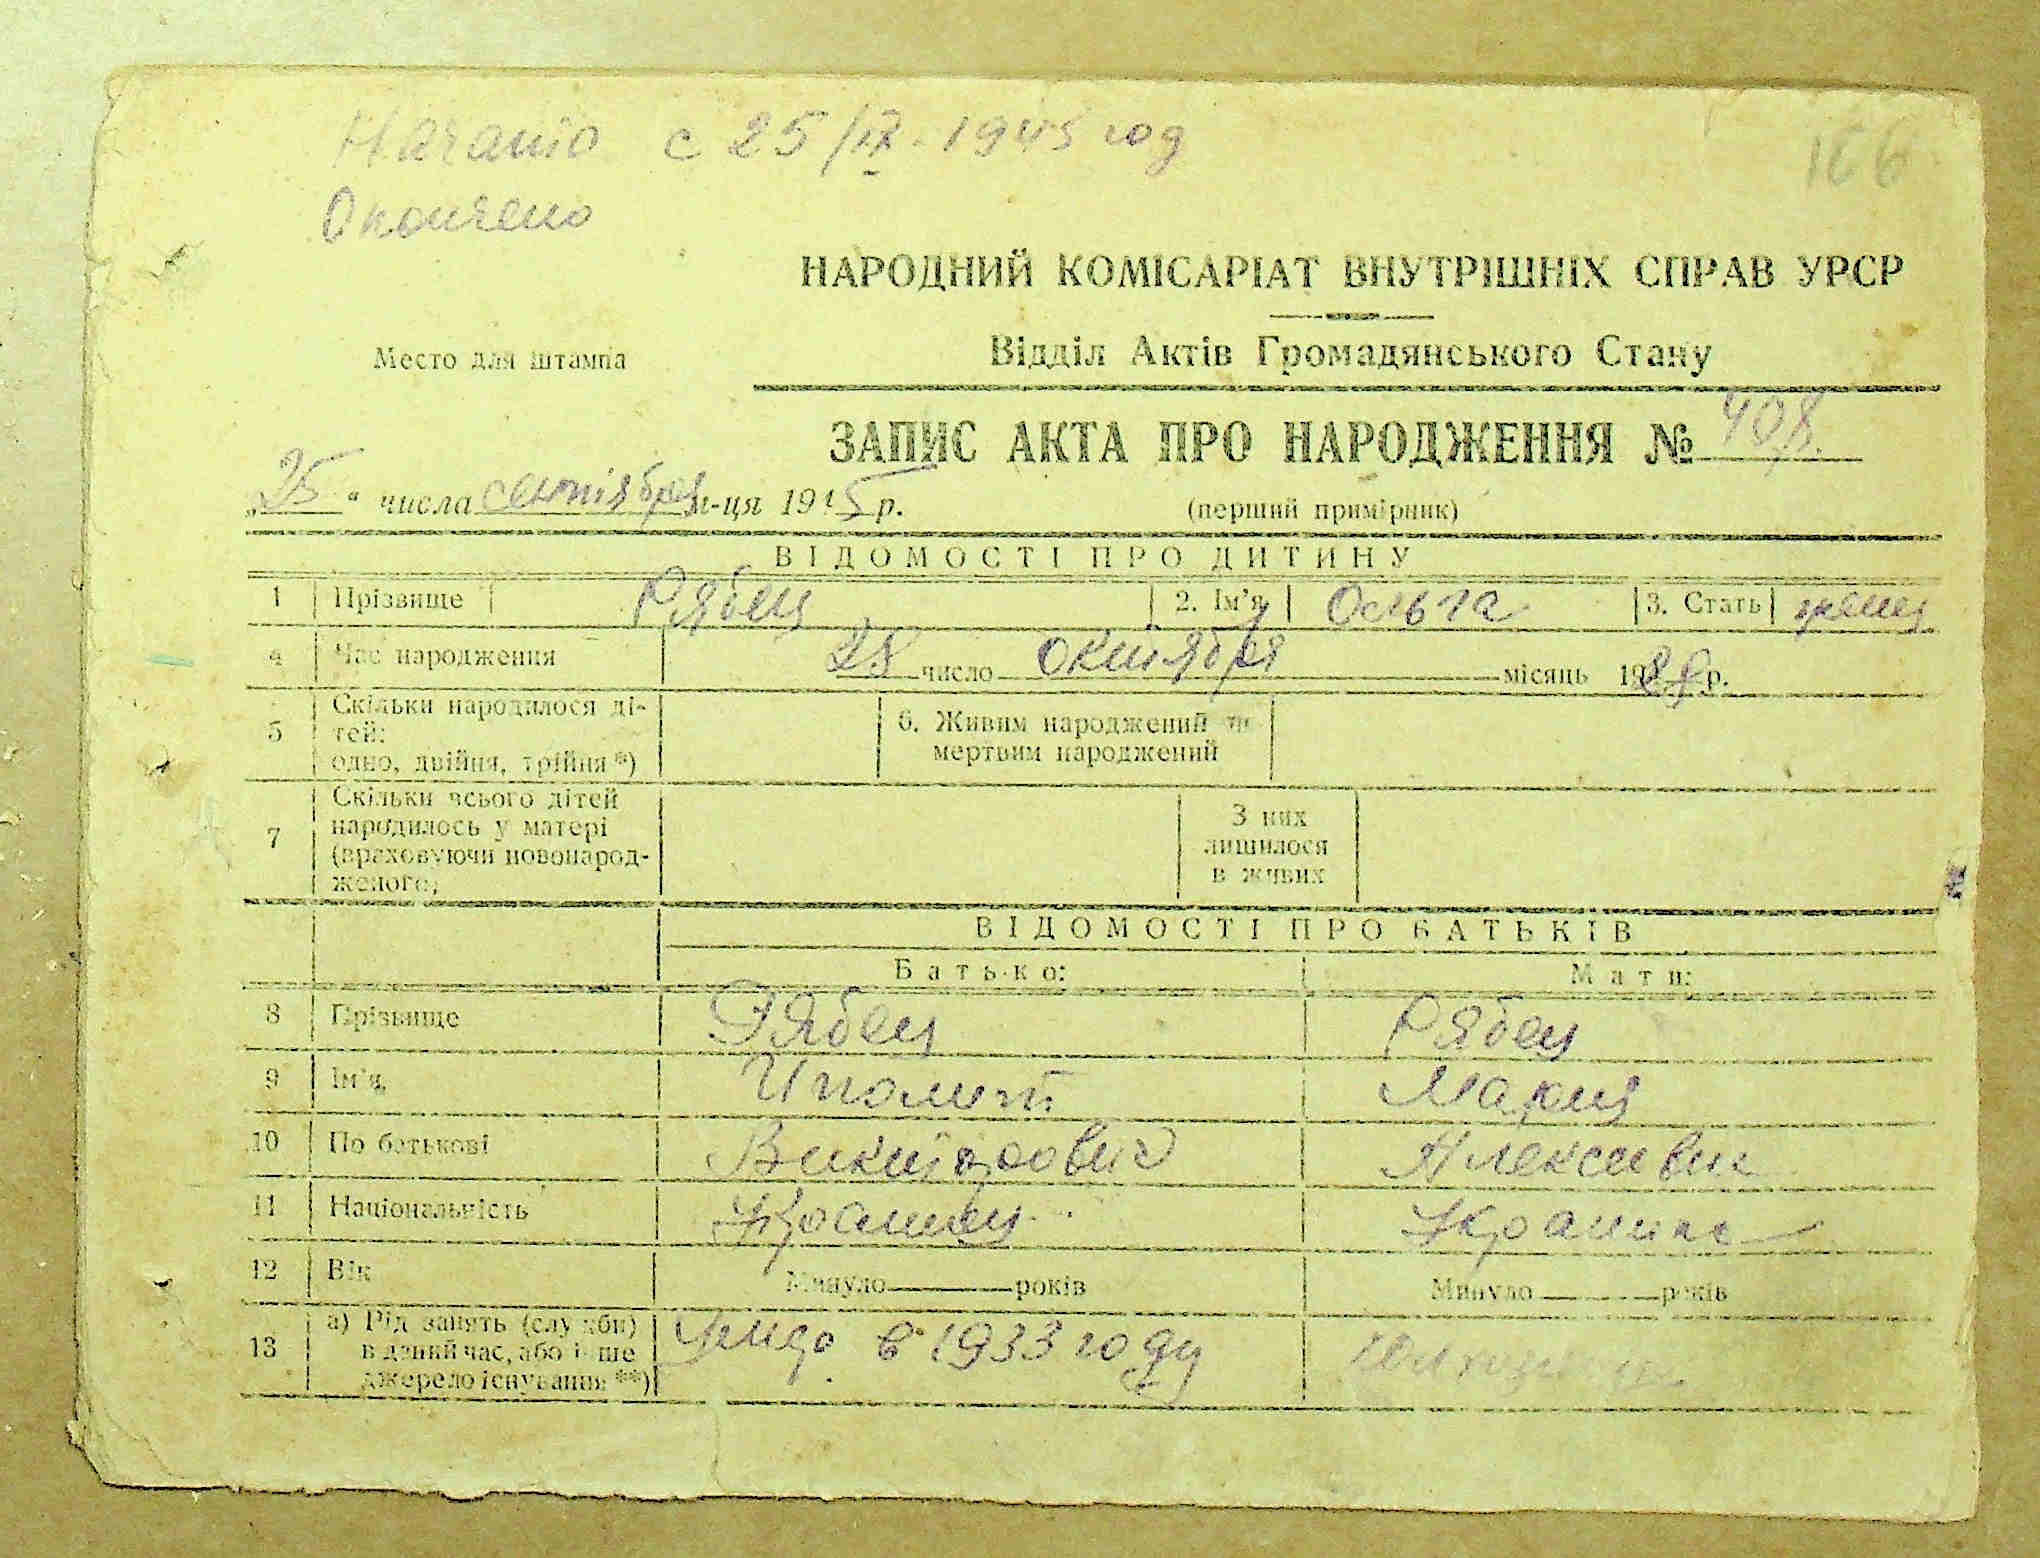 Начато с 25/IX-1945 год
166
Окончено
НАРОДНИЙ КОМІСАРІАТ ВНУТРІШНІХ СПРАВ УРСР
Место для штампа
Відділ Актів Громадянського Стану
ЗАПИС АКТА ПРО НАРОДЖЕННЯ № 408.
„25“ числа сентября м-ця 1945 р.
(перший примірник)
ВІДОМОСТІ ПРО ДИТИНУ
1 Прізвище Рябец 2. Ім'я Ольга 3. Стать женщ
4 Час народження 28 число октября місяць 19 р.
5 Скільки народилося ді-
тей:
одно, двійня, трійня *)
6. Живим народжений чи
мертвим народжений
7 Скільки всього дітей
народилось у матері
(враховуючи новонарод-
женого)
З них
лишилося
в живих
ВІДОМОСТІ ПРО БАТЬКІВ
Батько: Мати:
8 Прізвище Рябец Рябец
9 Ім'я Иполит Мария
10 По батькові Викторович Алексивна
11 Національність Украинец Украинка
12 Вік Минуло рокiв Минуло років
13 а) Рід занять (служби)
в даний час, або інше
джерело існування **)
Умер в 1933 году